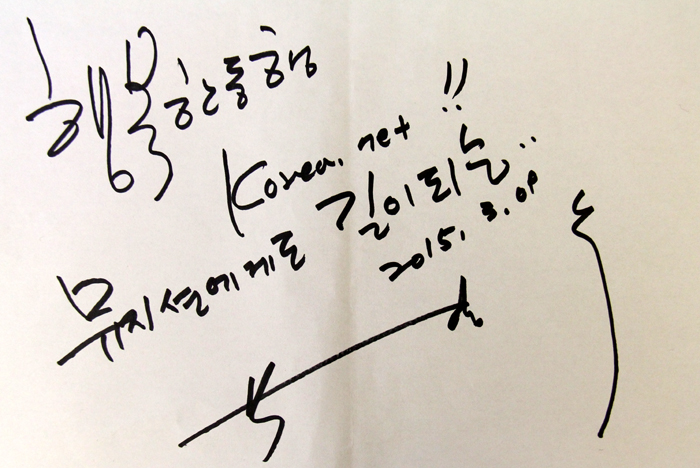 행복한동행
Korea.net !!
뮤지션에게도 길이되는..
2015. 3. 09